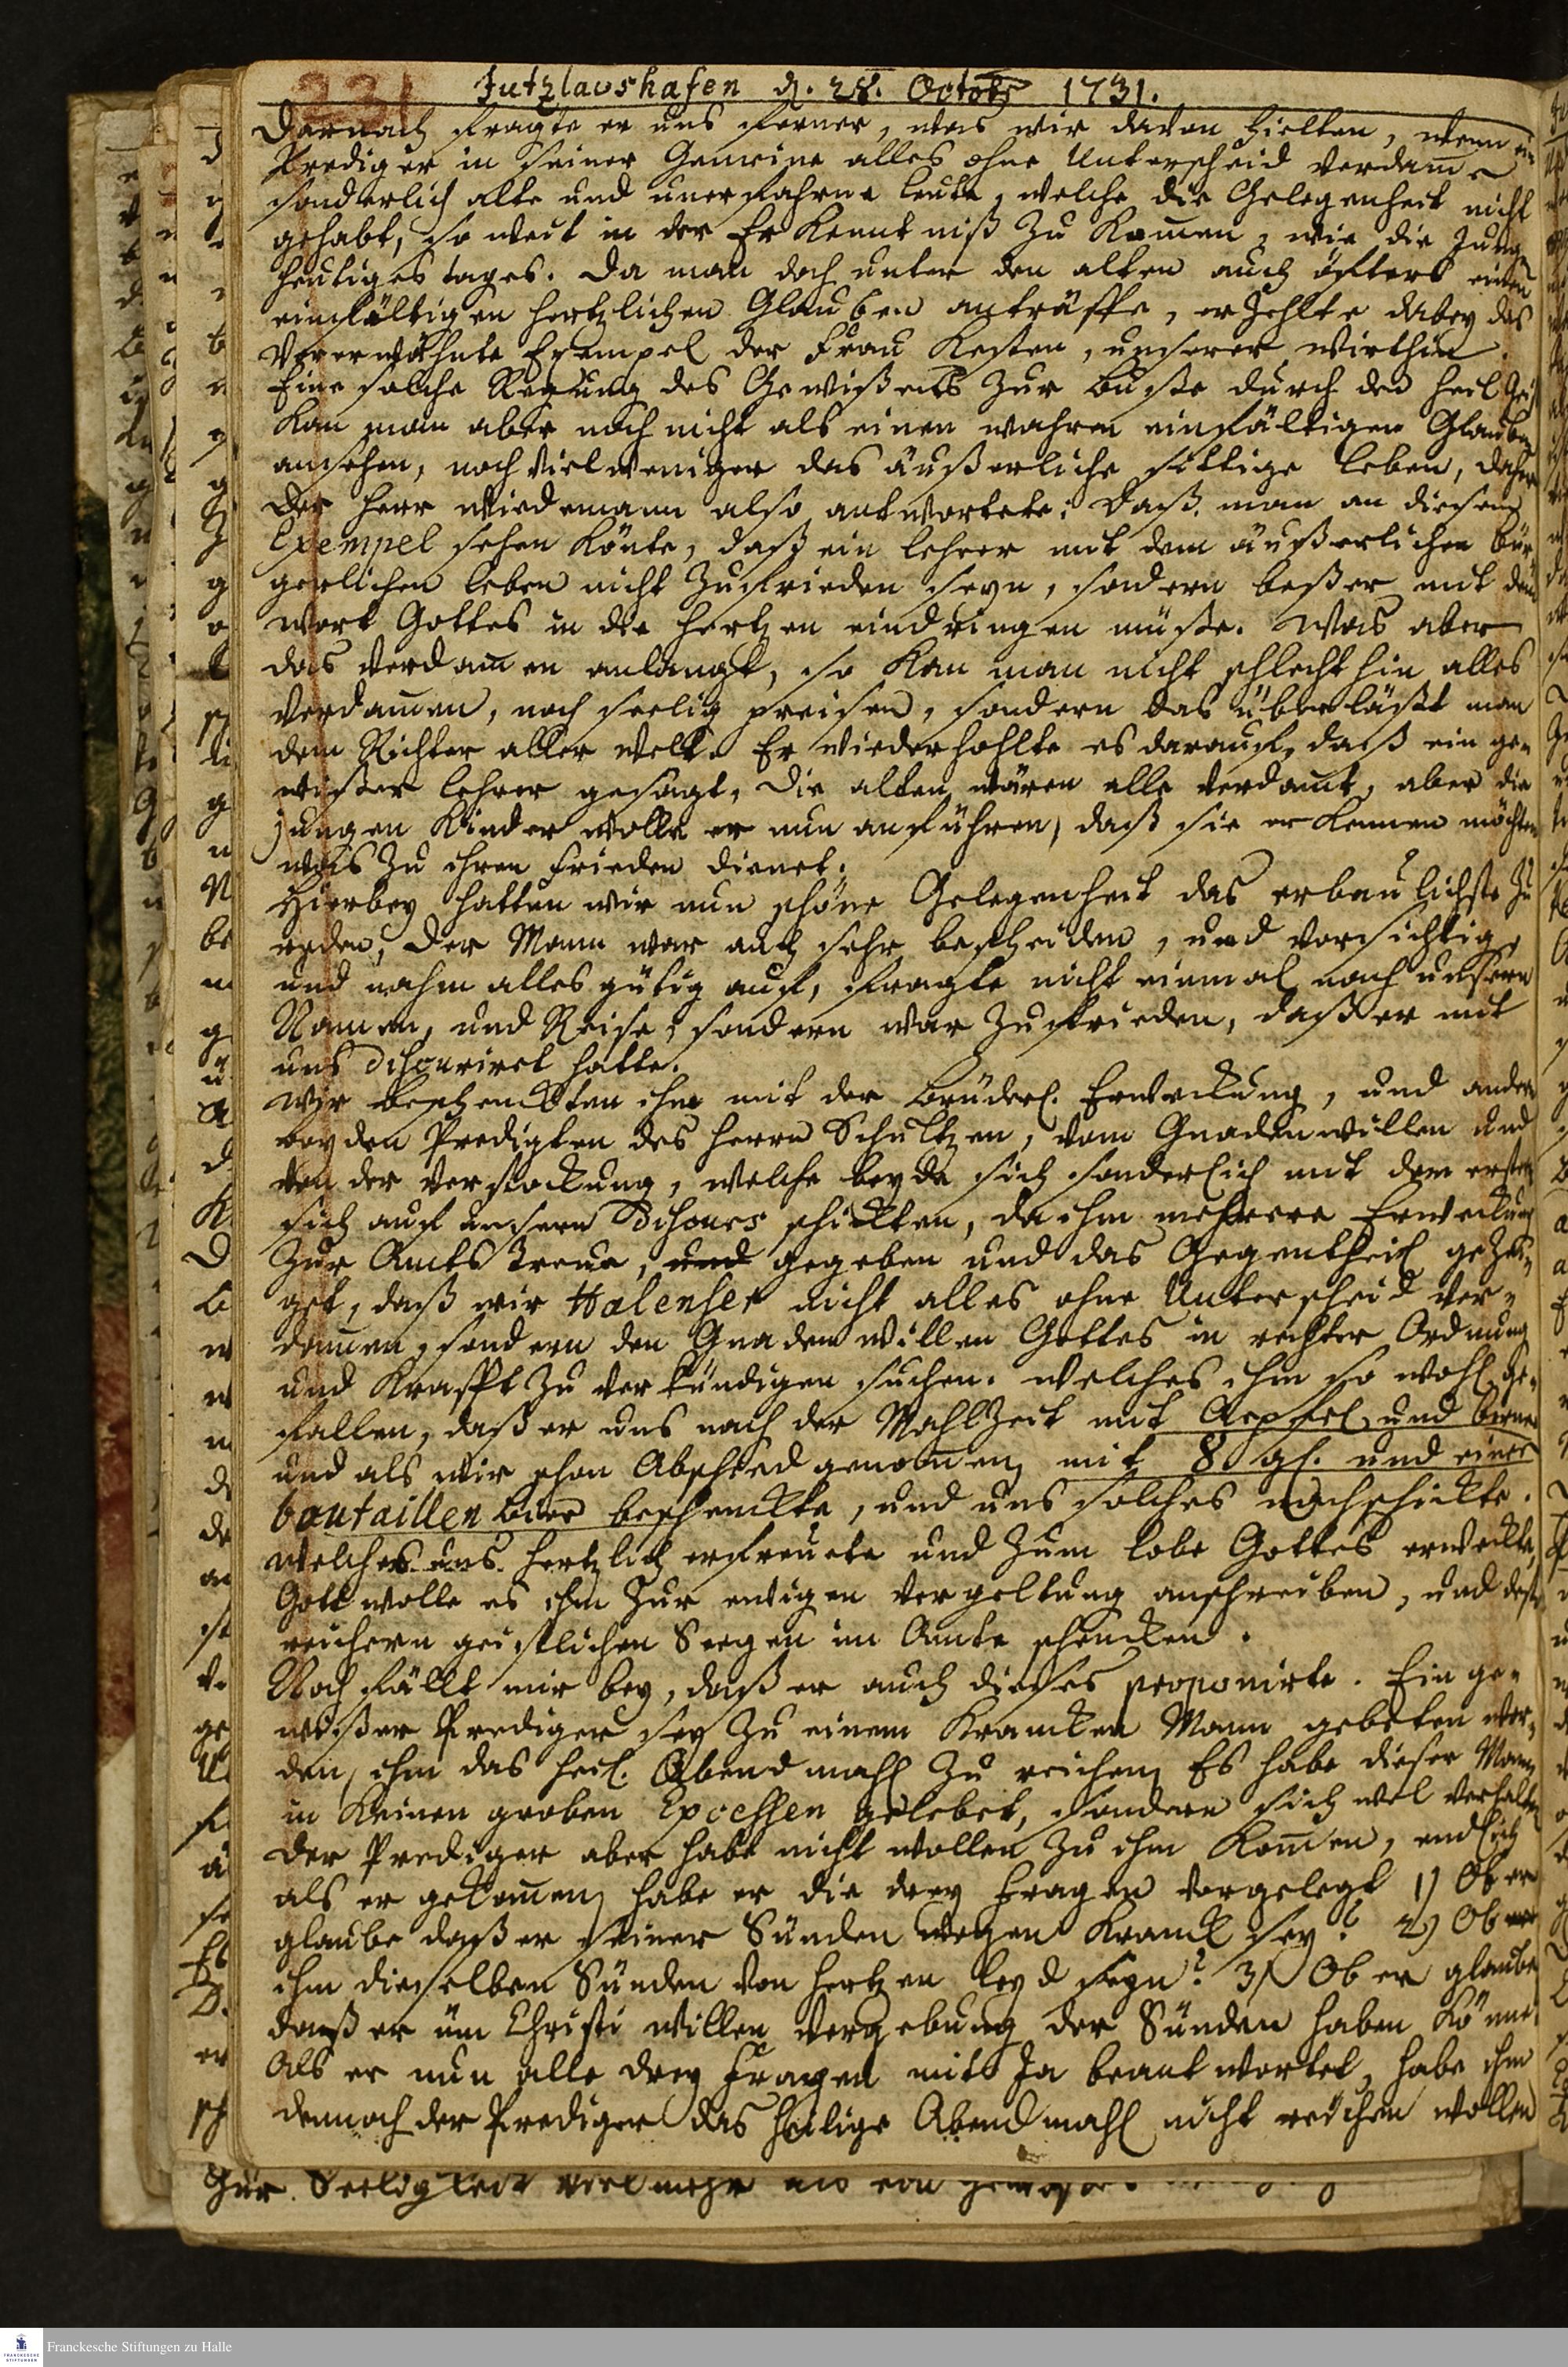 231
Jutzlavshafen d. 28. Octobr 1731.
Darnach fragte er uns ferner, was wir davon hielten, wenn ein
Prediger in seiner Gemeine alles ohne Unterscheid verdam̅e
sonderlich alte und unerfahrne leute, welche die Gelegenheit nicht
gehabt, so weit in der Erkenntniß zu kom̅en, wie die Jungen
heutiges tages. Da man doch unter den alten auch öffters einen
einfältigen hertzlichen Glauben anträffe, erzehlte dabey das
Vorerwähnte Exempel der Frau Kesten, unserer Wirthin.
Eine solche Regung des Gewißens zur buße durch den heil. Geist
kan man aber noch nicht als einen wahren einfältigen Glauben
ansehen, noch vielweniger das äußerliche sittige leben, daher
der Herr Wiedemann also antwortete: Daß man an diesem
Exempel sehen könte, daß ein lehrer mit dem äußerlichen bür-
gerlichen leben nicht zufrieden seyn, sondern beßer mit dem
wort Gottes in die hertzen eindringen müste. Was aber
das verdam̅en anlangt, so kan man nicht schlechthin alles
verdam̅en, noch seelig preisen, sondern das überläßt man
dem Richter aller Welt. Er wiederhohlte es darauf, daß ein ge-
wißer lehrer gesagt, die alten wären alle verdam̅t, aber die
jungen Kinder wolle er nun anführen, daß sie erkennen möchten
was zu ihren Frieden dienet.
Hierbey hatten wir nun schöne Gelegenheit das erbaulichste zu
reden, der Mann war auch sehr bescheiden, und vorsichtig,
und nahm alles gütig auf, fragte nicht einmal nach unsern
Namen, und Reise, sondern war zufrieden, daß er mit
uns discouriret hatte.
Wir beschenckten ihn mit der brüderl. Erweckung, und andern
beyden Predigten des Herrn Schultzen, vom Gnadenwillen und
von der Verstockung, welche beyde sich sonderlich mit dem ersten
sich auf unsern Discours schickten, da ihm mehrere Erweckung
zur Amts treue, und gegeben und das Gegentheil gezei-
get, daß wir Halenser nicht alles ohne Unterscheid ver-
dam̅en, sondern den Gnadenwillen Gottes in rechter Ordnung
und Krafft zu verkündigen suchen. welches ihm so wohl ge-
fallen, daß er uns nach der Mahlzeit mit Aepfel und birnen
und als wir schon Abschied genom̅en, mit 8 gl. und einer
boutaillen bier beschenckte, und uns solches nachschickte.
welches uns hertzlich erfreuete und zum lobe Gottes erweckte,
Gott wolle es ihm zur ewigen Vergeltung anschreiben, und desto
reichern geistlichen Seegen im Amte schencken.
Noch fällt mir bey, daß er auch dieses proponirte. Ein ge-
wißer Prediger sey zu einem Krancken Mann gebeten wor-
den, ihm das heil. Abendmahl zu reichen, Es habe dieser Mann
in keinen groben Excessen gelebet, sondern sich wol verhalten
der Prediger aber habe nicht wollen zu ihm kom̅en, endlich
als er gekom̅en, habe er die drey Fragen vorgelegt 1) Ob er
glaube daß er seiner Sünden wegen Kranck sey? 2) Ob
ihm dieselben Sünden von hertzen leyd seyn? 3) Ob er glaube
daß er üm Christi willen Vergebung der Sünden haben könne.
Als er nun alle drey Fragen mit Ja beantwortet, habe ihm
dennoch der Prediger das heilige Abendmahl nicht reichen wollen
zur Seeligkeit vielmehr
FRANCKESCHE STIFTUNGEN
Franckesche Stiftungen zu Halle